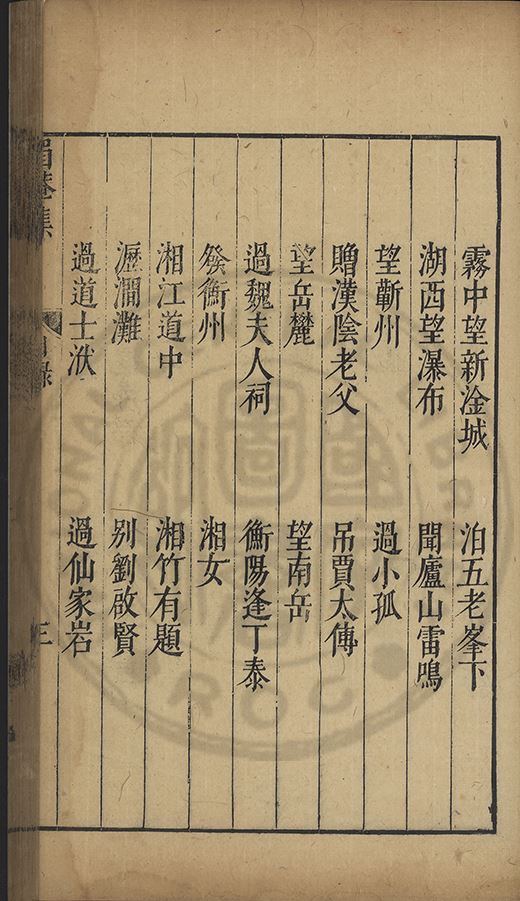 霧中望新淦城　泊五老峯下
湖西望瀑布　聞廬山雷鳴
望蘄州　過小孤
贈漢陰老父　吊賈太傅
望岳麓　望南岳
過魏夫人祠　衡陽逢丁泰
發衡州　湘女
湘江道中　湘竹有題
瀝澗灘　別劉啟賢
過道士洑　過仙家岩
集　目錄　三